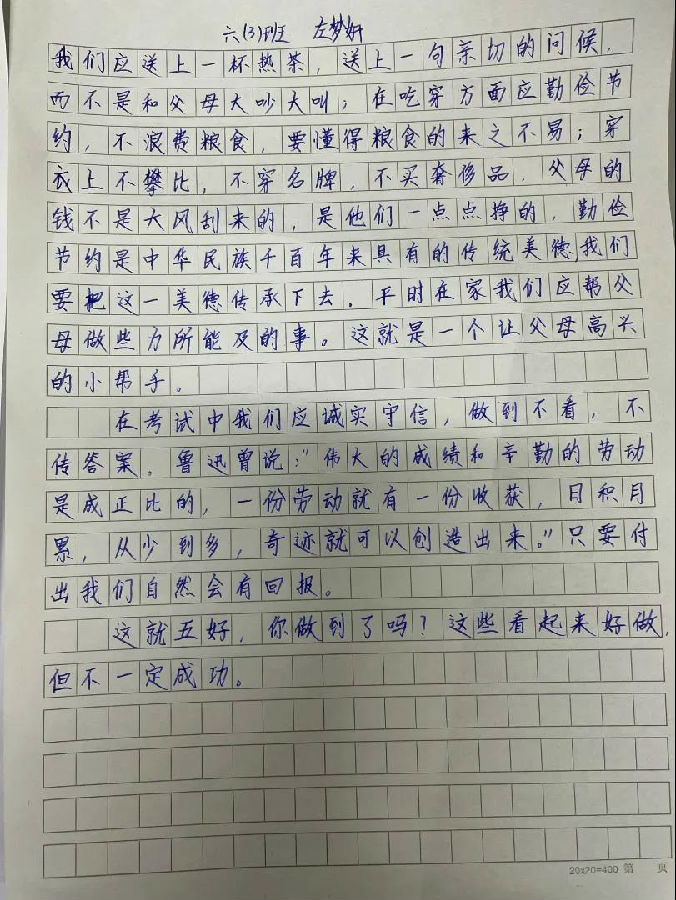 六(3)班 左梦妍
我们应送上一杯热茶，送上一句亲切的问候，
而不是和父母大吵大叫；在吃穿方面应勤俭节
约，不浪费粮食，要懂得粮食的来之不易；穿
衣上不攀比，不穿名牌，不买奢侈品，父母的
钱不是大风刮来的，是他们一点点挣的，勤俭
节约是中华民族千百年来具有的传统美德我们
要把这一美德传承下去。平时在家我们应帮父
母做些力所能及的事。这就是一个让父母高兴
的小帮手。
在考试中我们应诚实守信，做到不看，不
传答案。鲁迅曾说：“伟大的成绩和辛勤的劳动
是成正比的，一份劳动就有一份收获，日积月
累，从少到多，奇迹就可以创造出来。”只要付
出我们自然会有回报。
这就五好，你做到了吗？这些看起来好做，
但不一定成功。
20×20=400 第 页